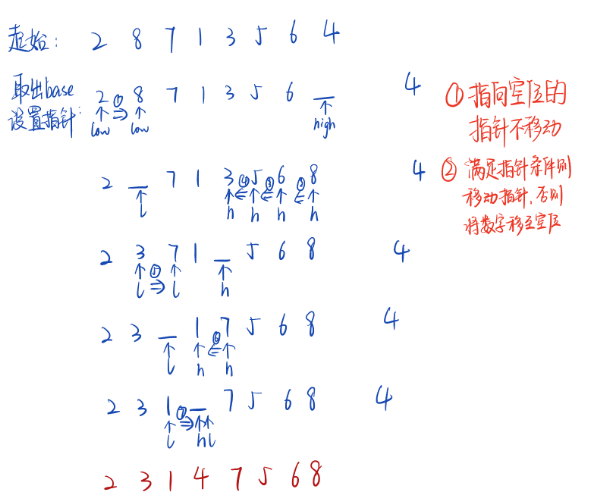 起始: 2 8 7 1 3 5 6 4
取出base
设置指针: 2 ① 8 7 1 3 5 6 _ 4
low low high
① 指向空位的
指针不移动
2 _ 7 1 3 ④ 5 ③ 6 ② 8 4
l h h h h
② 满足指针条件则
移动指针,否则
将数字移至空位
2 3 7 1 _ 5 6 8 4
l ⑤ l h
2 3 _ 1 7 5 6 8 4
l h ⑥ h
2 3 1 ⑦ _ 7 5 6 8 4
l hl
2 3 1 4 7 5 6 8